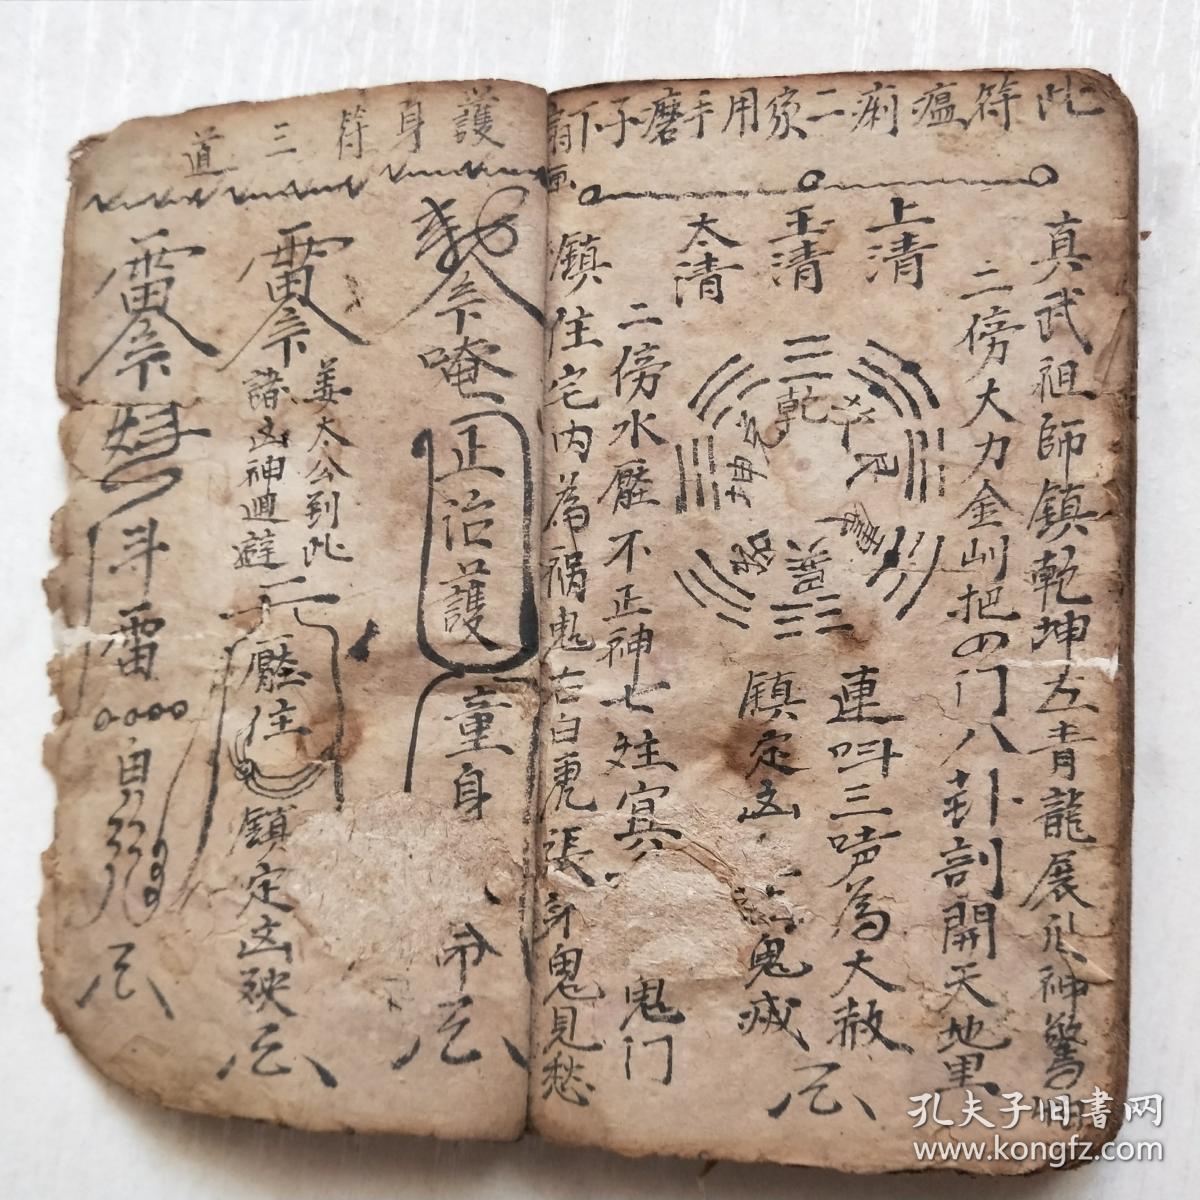 此符瘟痢二家用手磨子下
真武祖師鎮乾坤左青龍展爪神驚
二傍大力金刚把四门八卦剖開天地黑
上清
玉清
太清
乾
艮
震
坤
連叫三声為大赦
鎮定凶 鬼滅
二傍水壓不正神七姓冥 鬼门
鎮住宅内為禍鬼右白虎張 身鬼見愁
護身符三道
敕令唵正治護童身
雷令
姜太公到此
諸凶神迴避
壓住
鎮定凶殃
雷令
斗雷
孔夫子旧书网
www.kongfz.com